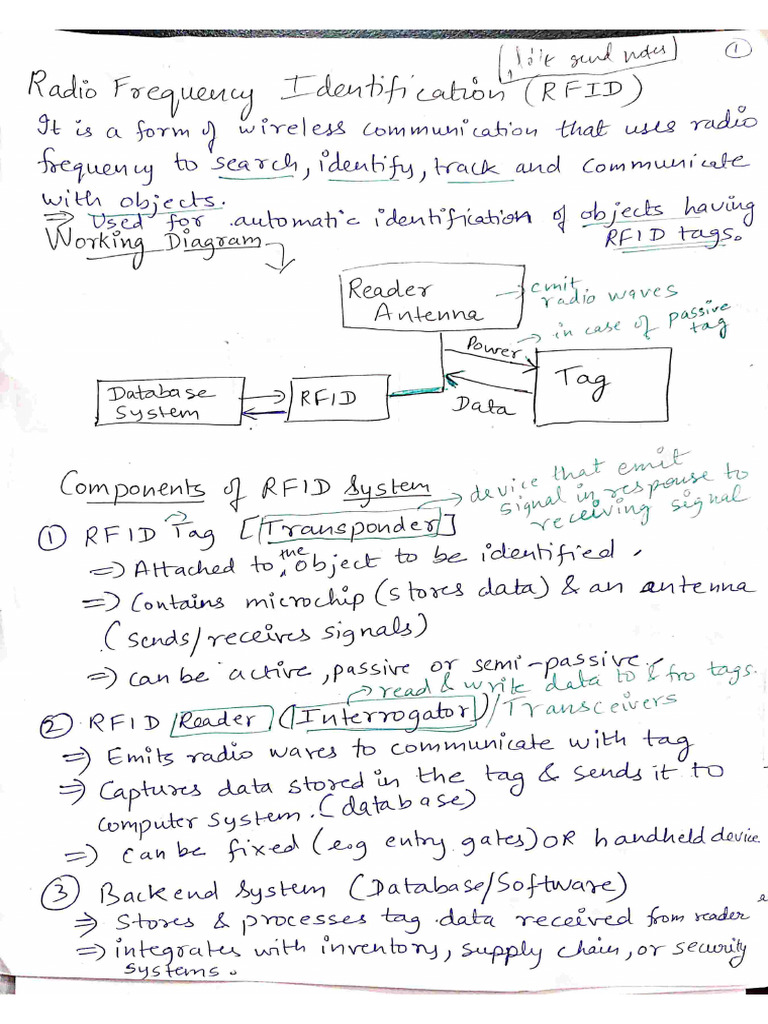 send notes
1
Radio Frequency Identification (RFID)
It is a form of wireless communication that uses radio
frequency to search, identify, track and communicate
with objects.
=> Used for automatic identification of objects having
RFID tags.
Working Diagram
Reader
Antenna
emit
radio waves
in case of passive
tag
Power
Tag
Database
System
RFID
Data
Components of RFID System
device that emit
signal in response to
receiving signal
① RFID Tag [Transponder]
=> Attached to the object to be identified.
=> Contains microchip (stores data) & an antenna
(sends/receives signals)
=> can be active, passive or semi-passive.
read & write data to & fro tags.
② RFID Reader (Interrogator)/Transceivers
=> Emits radio waves to communicate with tag
=> Captures data stored in the tag & sends it to
computer system. (database)
=> can be fixed (e.g entry gates) OR handheld device
③ Backend System (Database/Software)
=> Stores & processes tag data received from reader
=> integrates with inventory, supply chain, or security
systems.